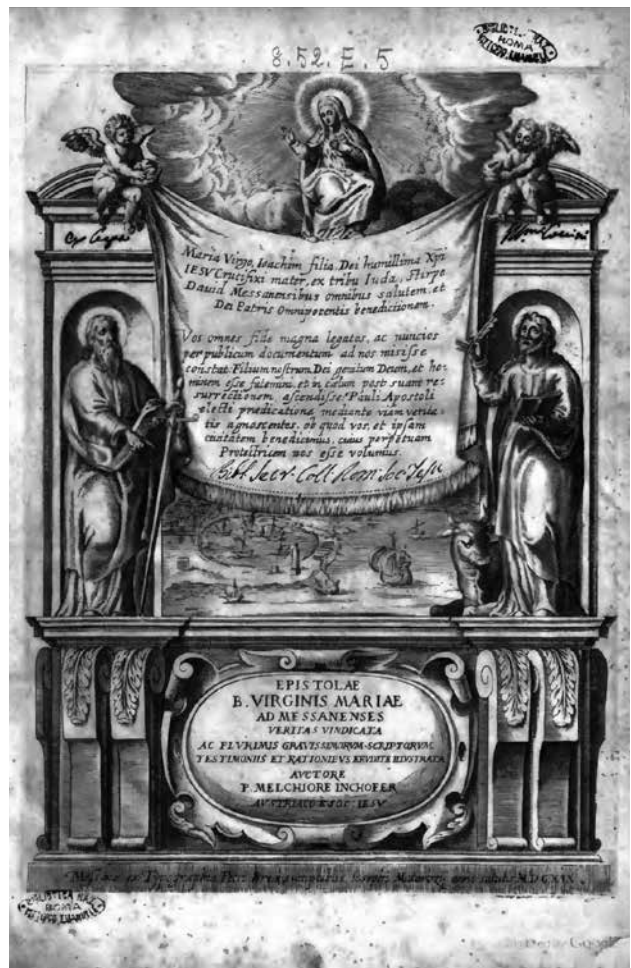 8.52.E.5
ROMA
Maria Virgo, Ioachim filia, Dei humillima Xpi
IESV Crucifixi mater, ex tribu Iuda, Stirpe
David Messanensibus omnibus salutem, et
Dei Patris Omnipotentis benedictionem.
Vos omnes fide magna legatos, ac nuncios
per publicum documentum ad nos misisse
constat. Filium nostrum Dei genitum Deum, et ho-
minem esse fatemini, et in cælum post suam re-
surrectionem ascendisse: Pauli Apostoli
electi predicatione mediante viam verita-
tis agnoscentes. ob quod vos, et ipsam
ciuitatem benedicimus. cuius perpetuam
Protectricem nos esse volumus.
Bibl. Secr. Coll. Rom. Soc. Jesu
EPISTOLAE
B. VIRGINIS MARIAE
AD MESSANENSES
VERITAS VINDICATA
AC PLVRIMIS GRAVISSIMORVM SCRIPTORVM
TESTIMONIIS ET RATIONIBVS ERVDITE ILLVSTRATA
AVCTORE
P. MELCHIORE INCHOFER
AVSTRIACO E SOC. IESV
ex Typographia Petri Breæ
ROMA
Google